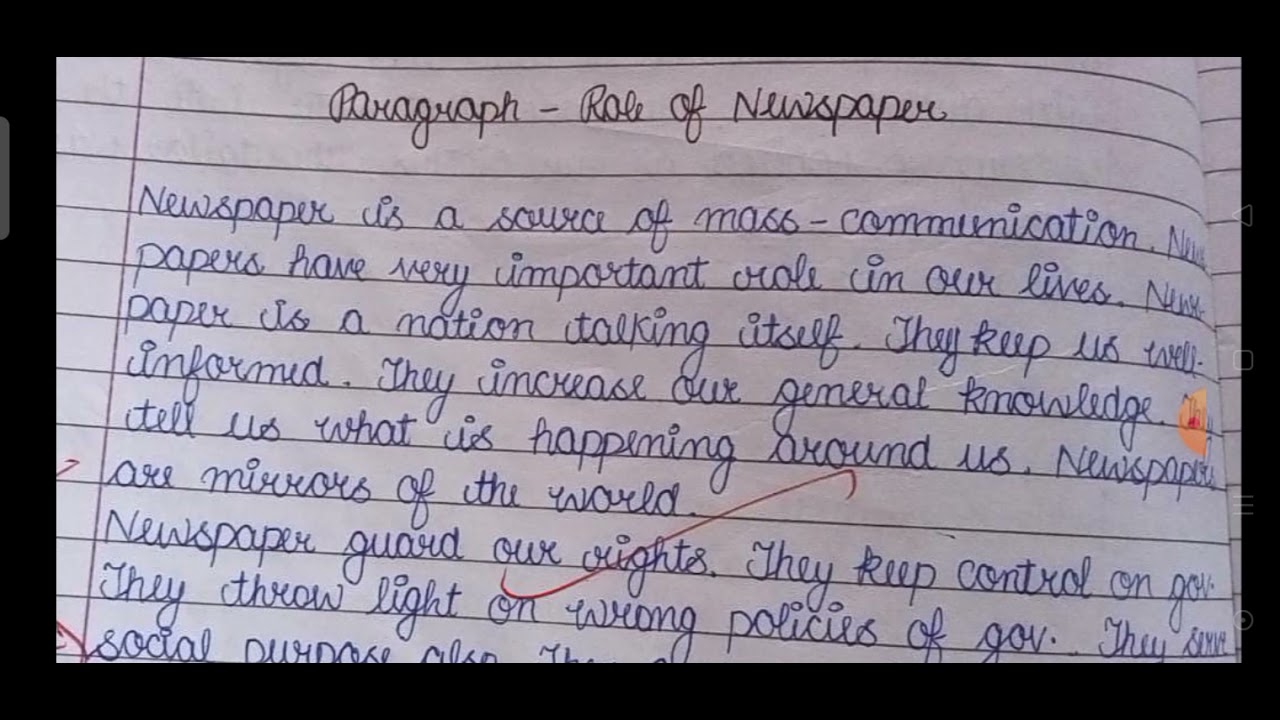 Paragraph - Role of Newspaper
Newspaper is a source of mass-communication. News
papers have very important role in our lives. News
paper is a nation talking itself. They keep us well-
informed. They increase our general knowledge. They
tell us what is happening around us. Newspapers
are mirrors of the world.
Newspaper guard our rights. They keep control on gov.
They throw light on wrong policies of gov. They serve
social purpose also.